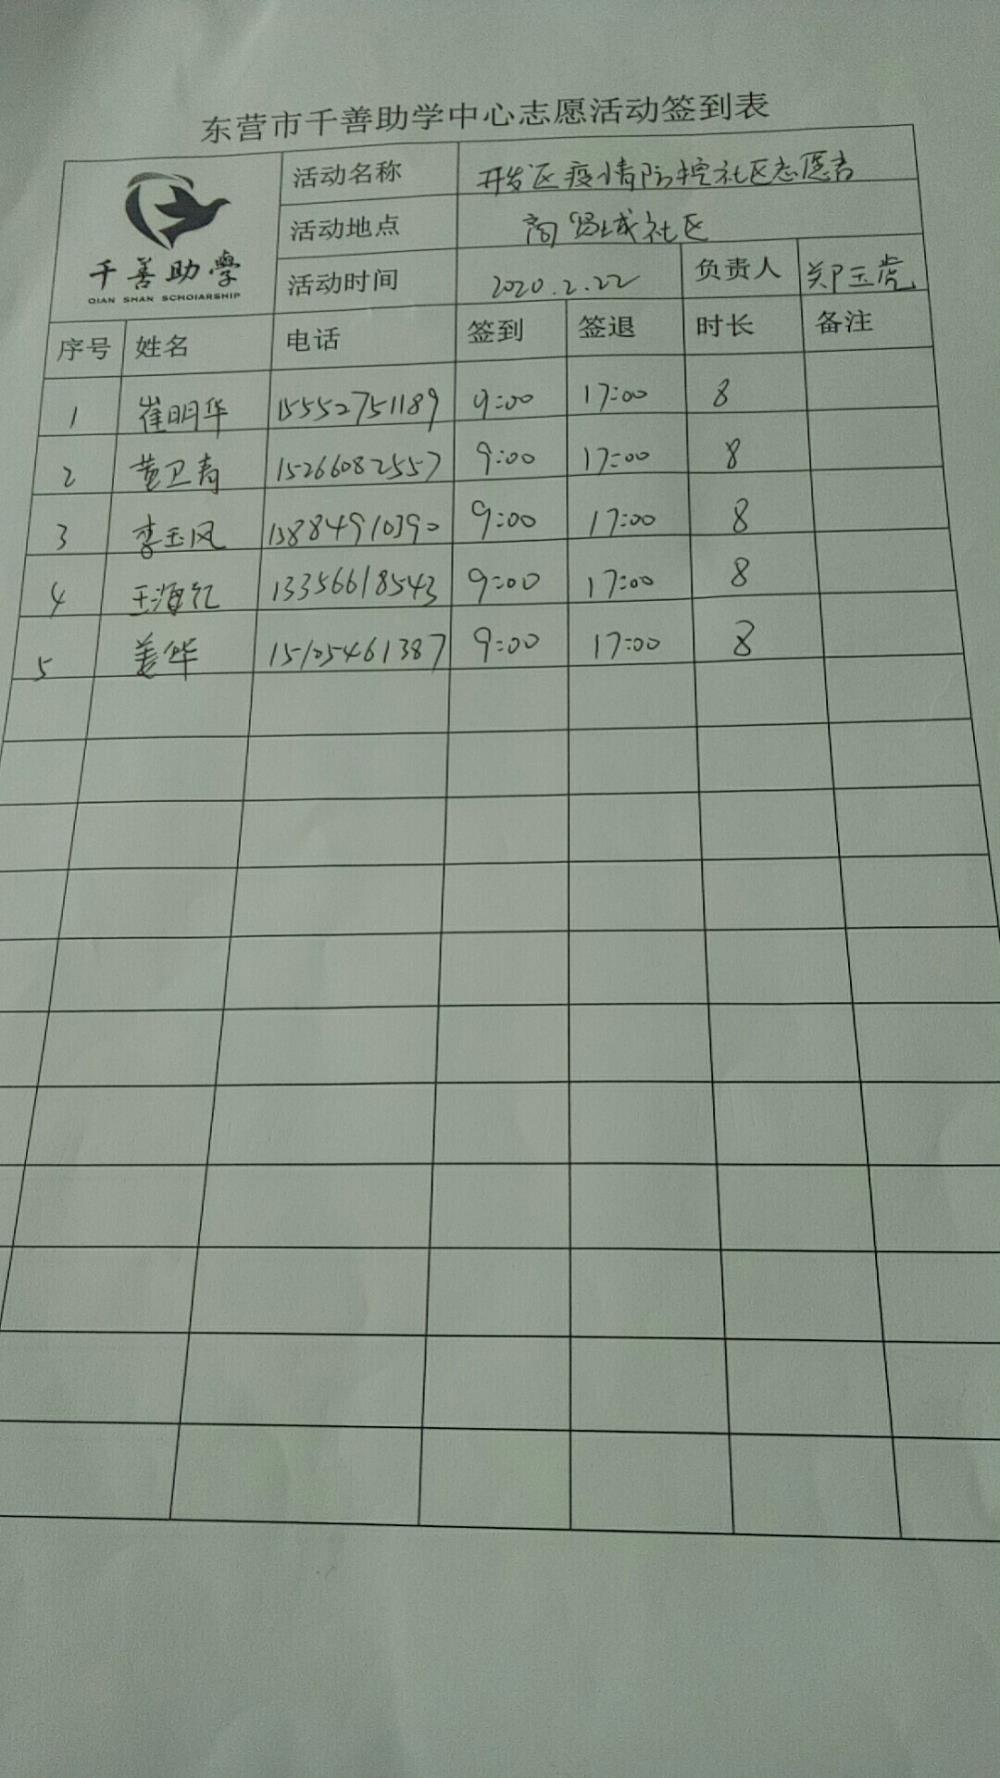 东营市千善助学中心志愿活动签到表
千善助學
QIAN SHAN SCHOIARSHIP
活动名称 开发区疫情防控社区志愿者
活动地点 商贸城社区
活动时间 2020.2.22 负责人 郑玉虎
序号 姓名 电话 签到 签退 时长 备注
1 崔明华 15552751189 9:00 17:00 8
2 董卫青 15266082557 9:00 17:00 8
3 李玉风 13884910390 9:00 17:00 8
4 王海红 13356618543 9:00 17:00 8
5 姜华 15105461387 9:00 17:00 8